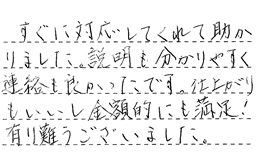 すぐに対応してくれて助か
りました。説明も分かりやすく
連絡も良かったです。仕上がり
もいいし金額的にも満足!
有り難うございました。